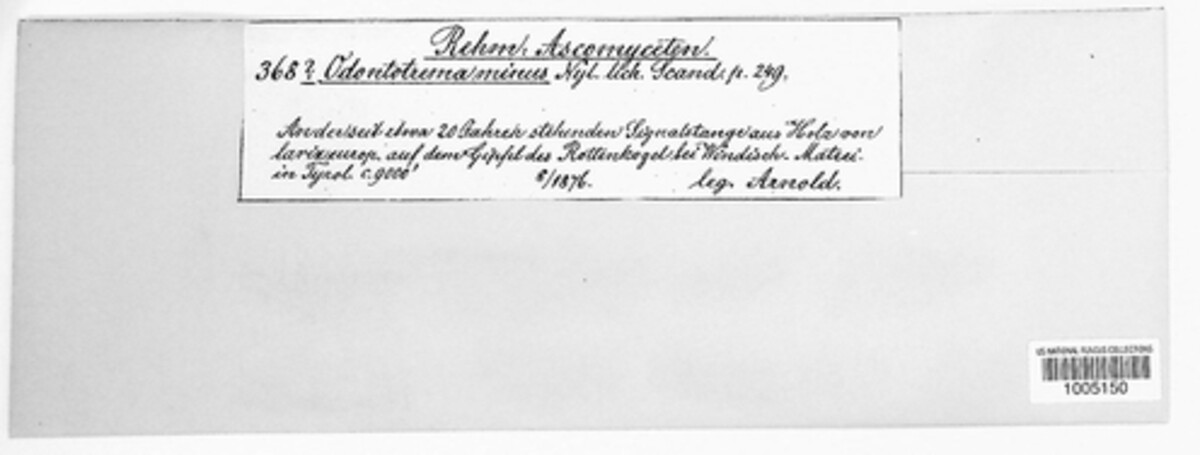 Rehm. Ascomyceten.
368? Odontotrema minus Nyl. lich. Scand. p. 249.
An der seit etwa 20 Jahren stehenden Signalstange aus Holz von
larix europ. auf dem Gipfel des Rottenkogel bei Windisch-Matrei
in Tyrol. c. 9000'
8/1876.
leg. Arnold.
US NATIONAL FUNGUS COLLECTIONS
1005150